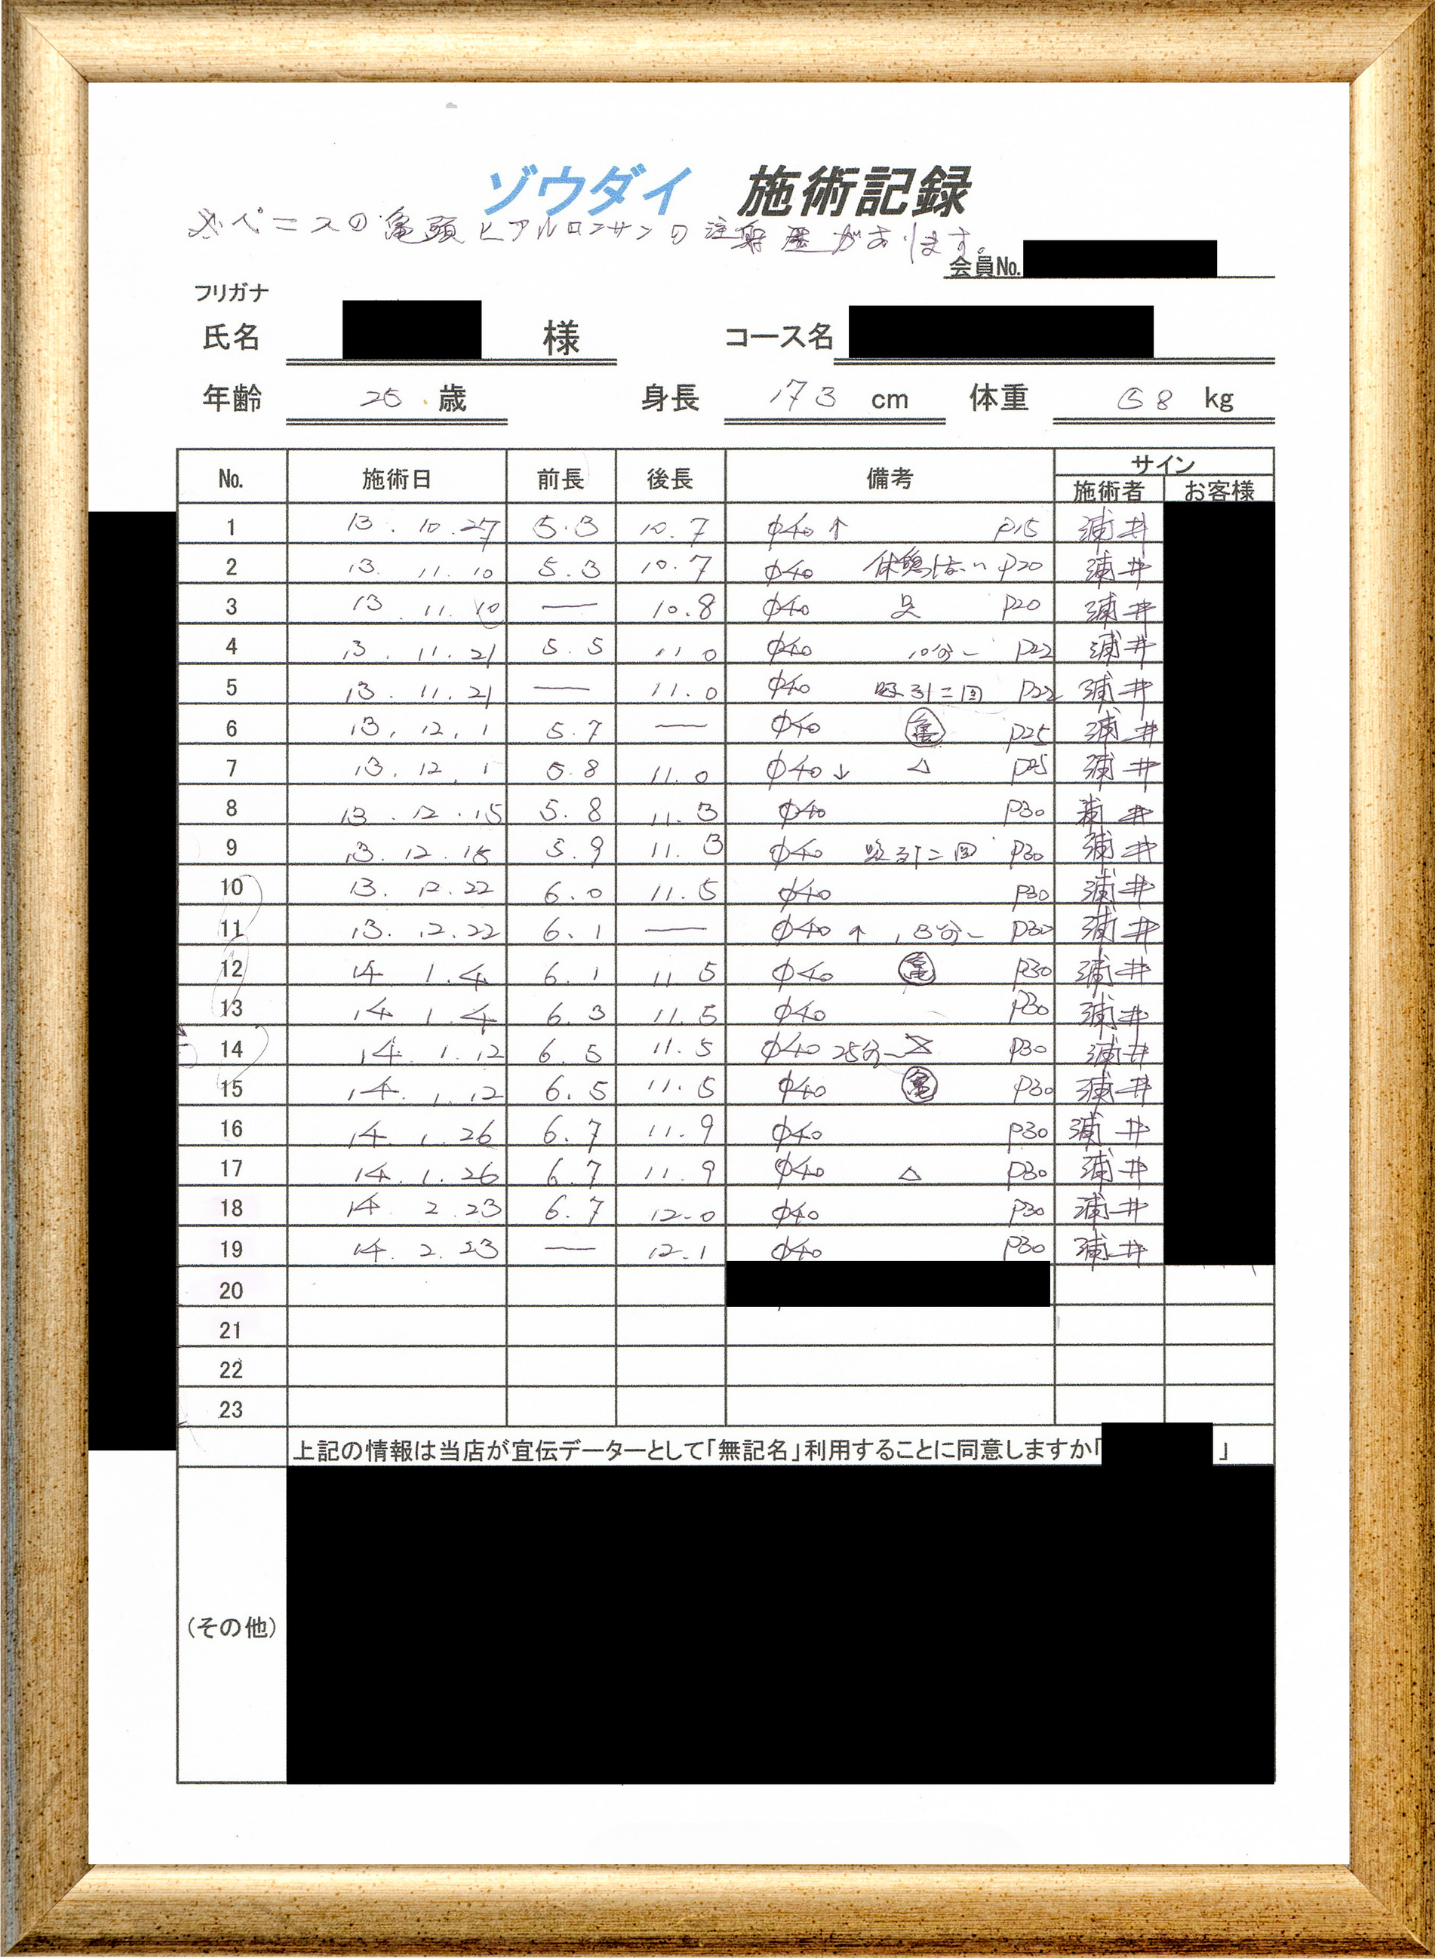 ゾウダイ 施術記録
※ペニスの亀頭ヒアルロンサンの注射歴があります。
会員No.
フリガナ
氏名 様 コース名
年齢 25 歳 身長 173 cm 体重 68 kg
No. 施術日 前長 後長 備考 サイン
施術者 お客様
1 13.10.27 5.3 10.7 φ40↑ P15 浦井
2 13.11.10 5.3 10.7 φ40 P20 浦井
3 13 11.10 — 10.8 φ40 P20 浦井
4 13.11.21 5.5 11.0 φ40 10分〜 P22 浦井
5 13.11.21 — 11.0 φ40 吸引二回 P22 浦井
6 13.12.1 5.7 — φ40 亀 P25 浦井
7 13.12.1 5.8 11.0 φ40↓ △ P25 浦井
8 13.12.15 5.8 11.3 φ40 P30 浦井
9 13.12.15 5.9 11.3 φ40 吸引二回 P30 浦井
10 13.12.22 6.0 11.5 φ40 P30 浦井
11 13.12.22 6.1 — φ40↑ 13分〜 P30 浦井
12 14 1.4 6.1 11.5 φ40 亀 P30 浦井
13 14 1.4 6.3 11.5 φ40 P30 浦井
14 14.1.12 6.5 11.5 φ40 25分〜 P30 浦井
15 14.1.12 6.5 11.5 φ40 亀 P30 浦井
16 14 1.26 6.7 11.9 φ40 P30 浦井
17 14.1.26 6.7 11.9 φ40 △ P30 浦井
18 14 2.23 6.7 12.0 φ40 P30 浦井
19 14.2.23 — 12.1 φ40 P30 浦井
20
21
22
23
上記の情報は当店が宣伝データーとして「無記名」利用することに同意しますか「 」
(その他)